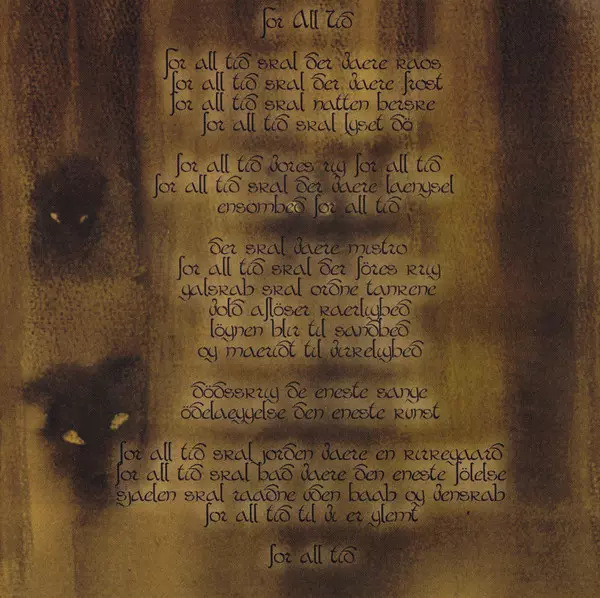 For All Tid
for all tid skal der vaere kaos
for all tid skal der vaere frost
for all tid skal natten herske
for all tid skal lyset dö
for all tid vores rig for all tid
for all tid skal der vaere laengsel
ensomhed for all tid
der skal vaere mistro
for all tid skal der föres krig
galskab skal ordne tankene
vold aflöser kaerlighed
lögnen blir til sandhed
og maeridt til virkelighed
dödsskrig de eneste sange
ödelaeggelse den eneste kunst
for all tid skal jorden vaere en kirkegaard
for all tid skal had vaere den eneste fölelse
sjaelen skal raadne uden haab og venskab
for all tid til vi er glemt
for all tid